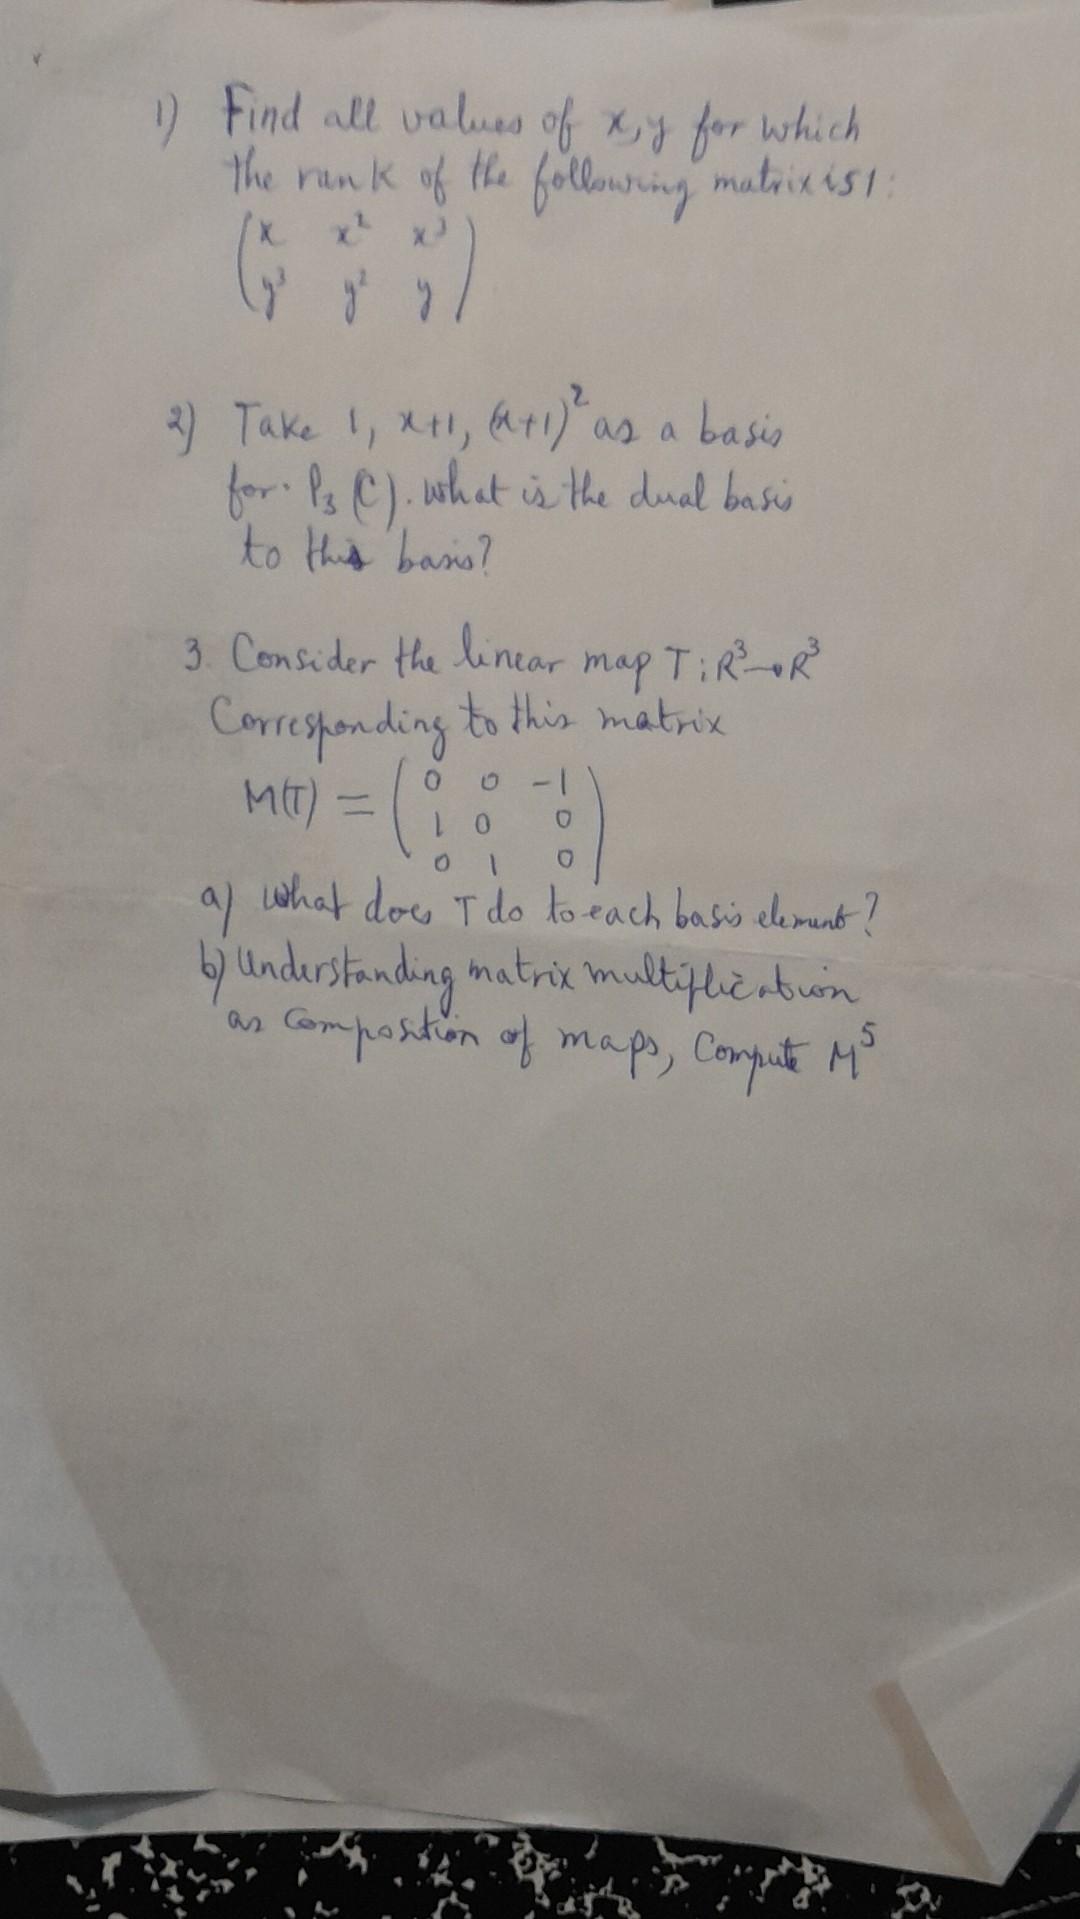 1) Find all values of x, y for which
the rank of the following matrix is 1:
x x² x³
y³ y² y
2) Take 1, x+1, (x+1)² as a basis
for P₃(C). What is the dual basis
to this basis?
3. Consider the linear map T: R³→R³
Corresponding to this matrix
M(T) = ( 0 0 -1
1 0 0
0 1 0 )
a) What does T do to each basis element?
b) Understanding matrix multiplication
as composition of maps, Compute M⁵